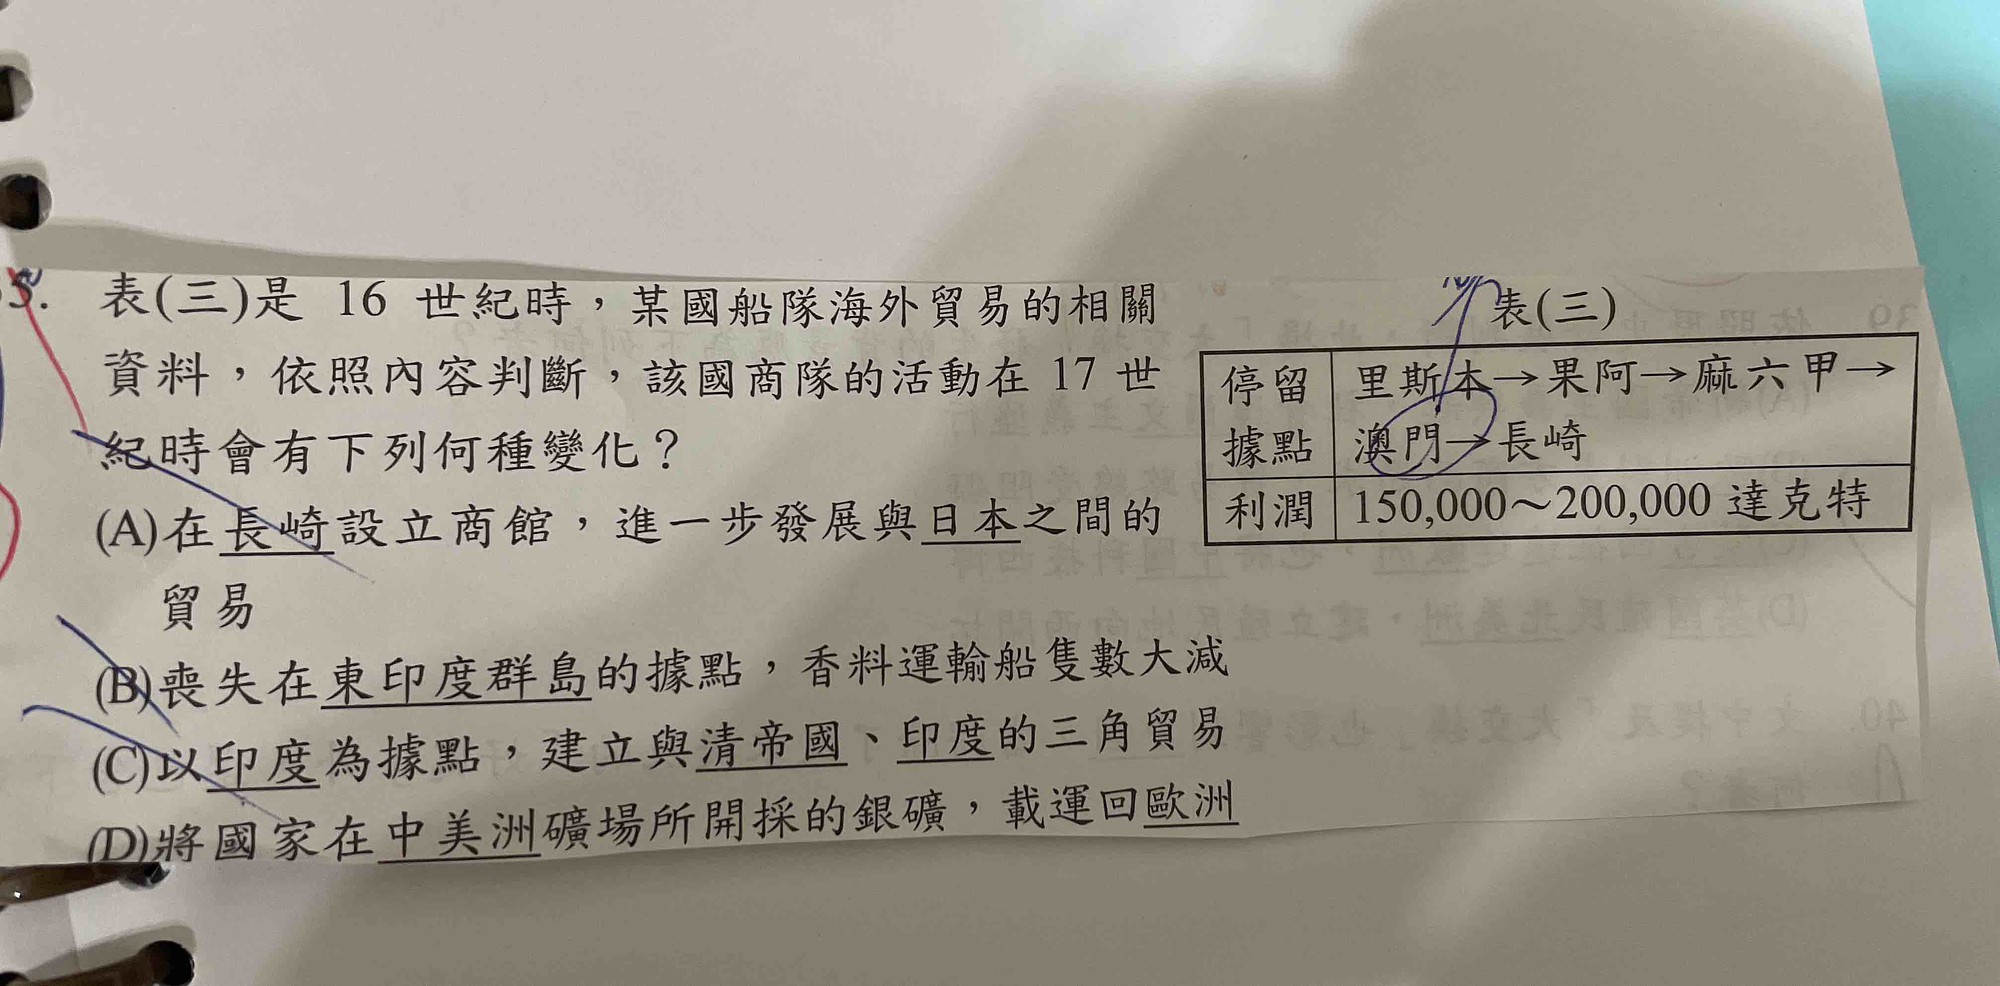 表(三)是 16 世紀時，某國船隊海外貿易的相關
資料，依照內容判斷，該國商隊的活動在 17 世
紀時會有下列何種變化？
(A)在長崎設立商館，進一步發展與日本之間的
貿易
(B)喪失在東印度群島的據點，香料運輸船隻數大減
(C)以印度為據點，建立與清帝國、印度的三角貿易
(D)將國家在中美洲礦場所開採的銀礦，載運回歐洲
表(三)
停留據點 里斯本→果阿→麻六甲→
澳門→長崎
利潤 150,000～200,000 達克特